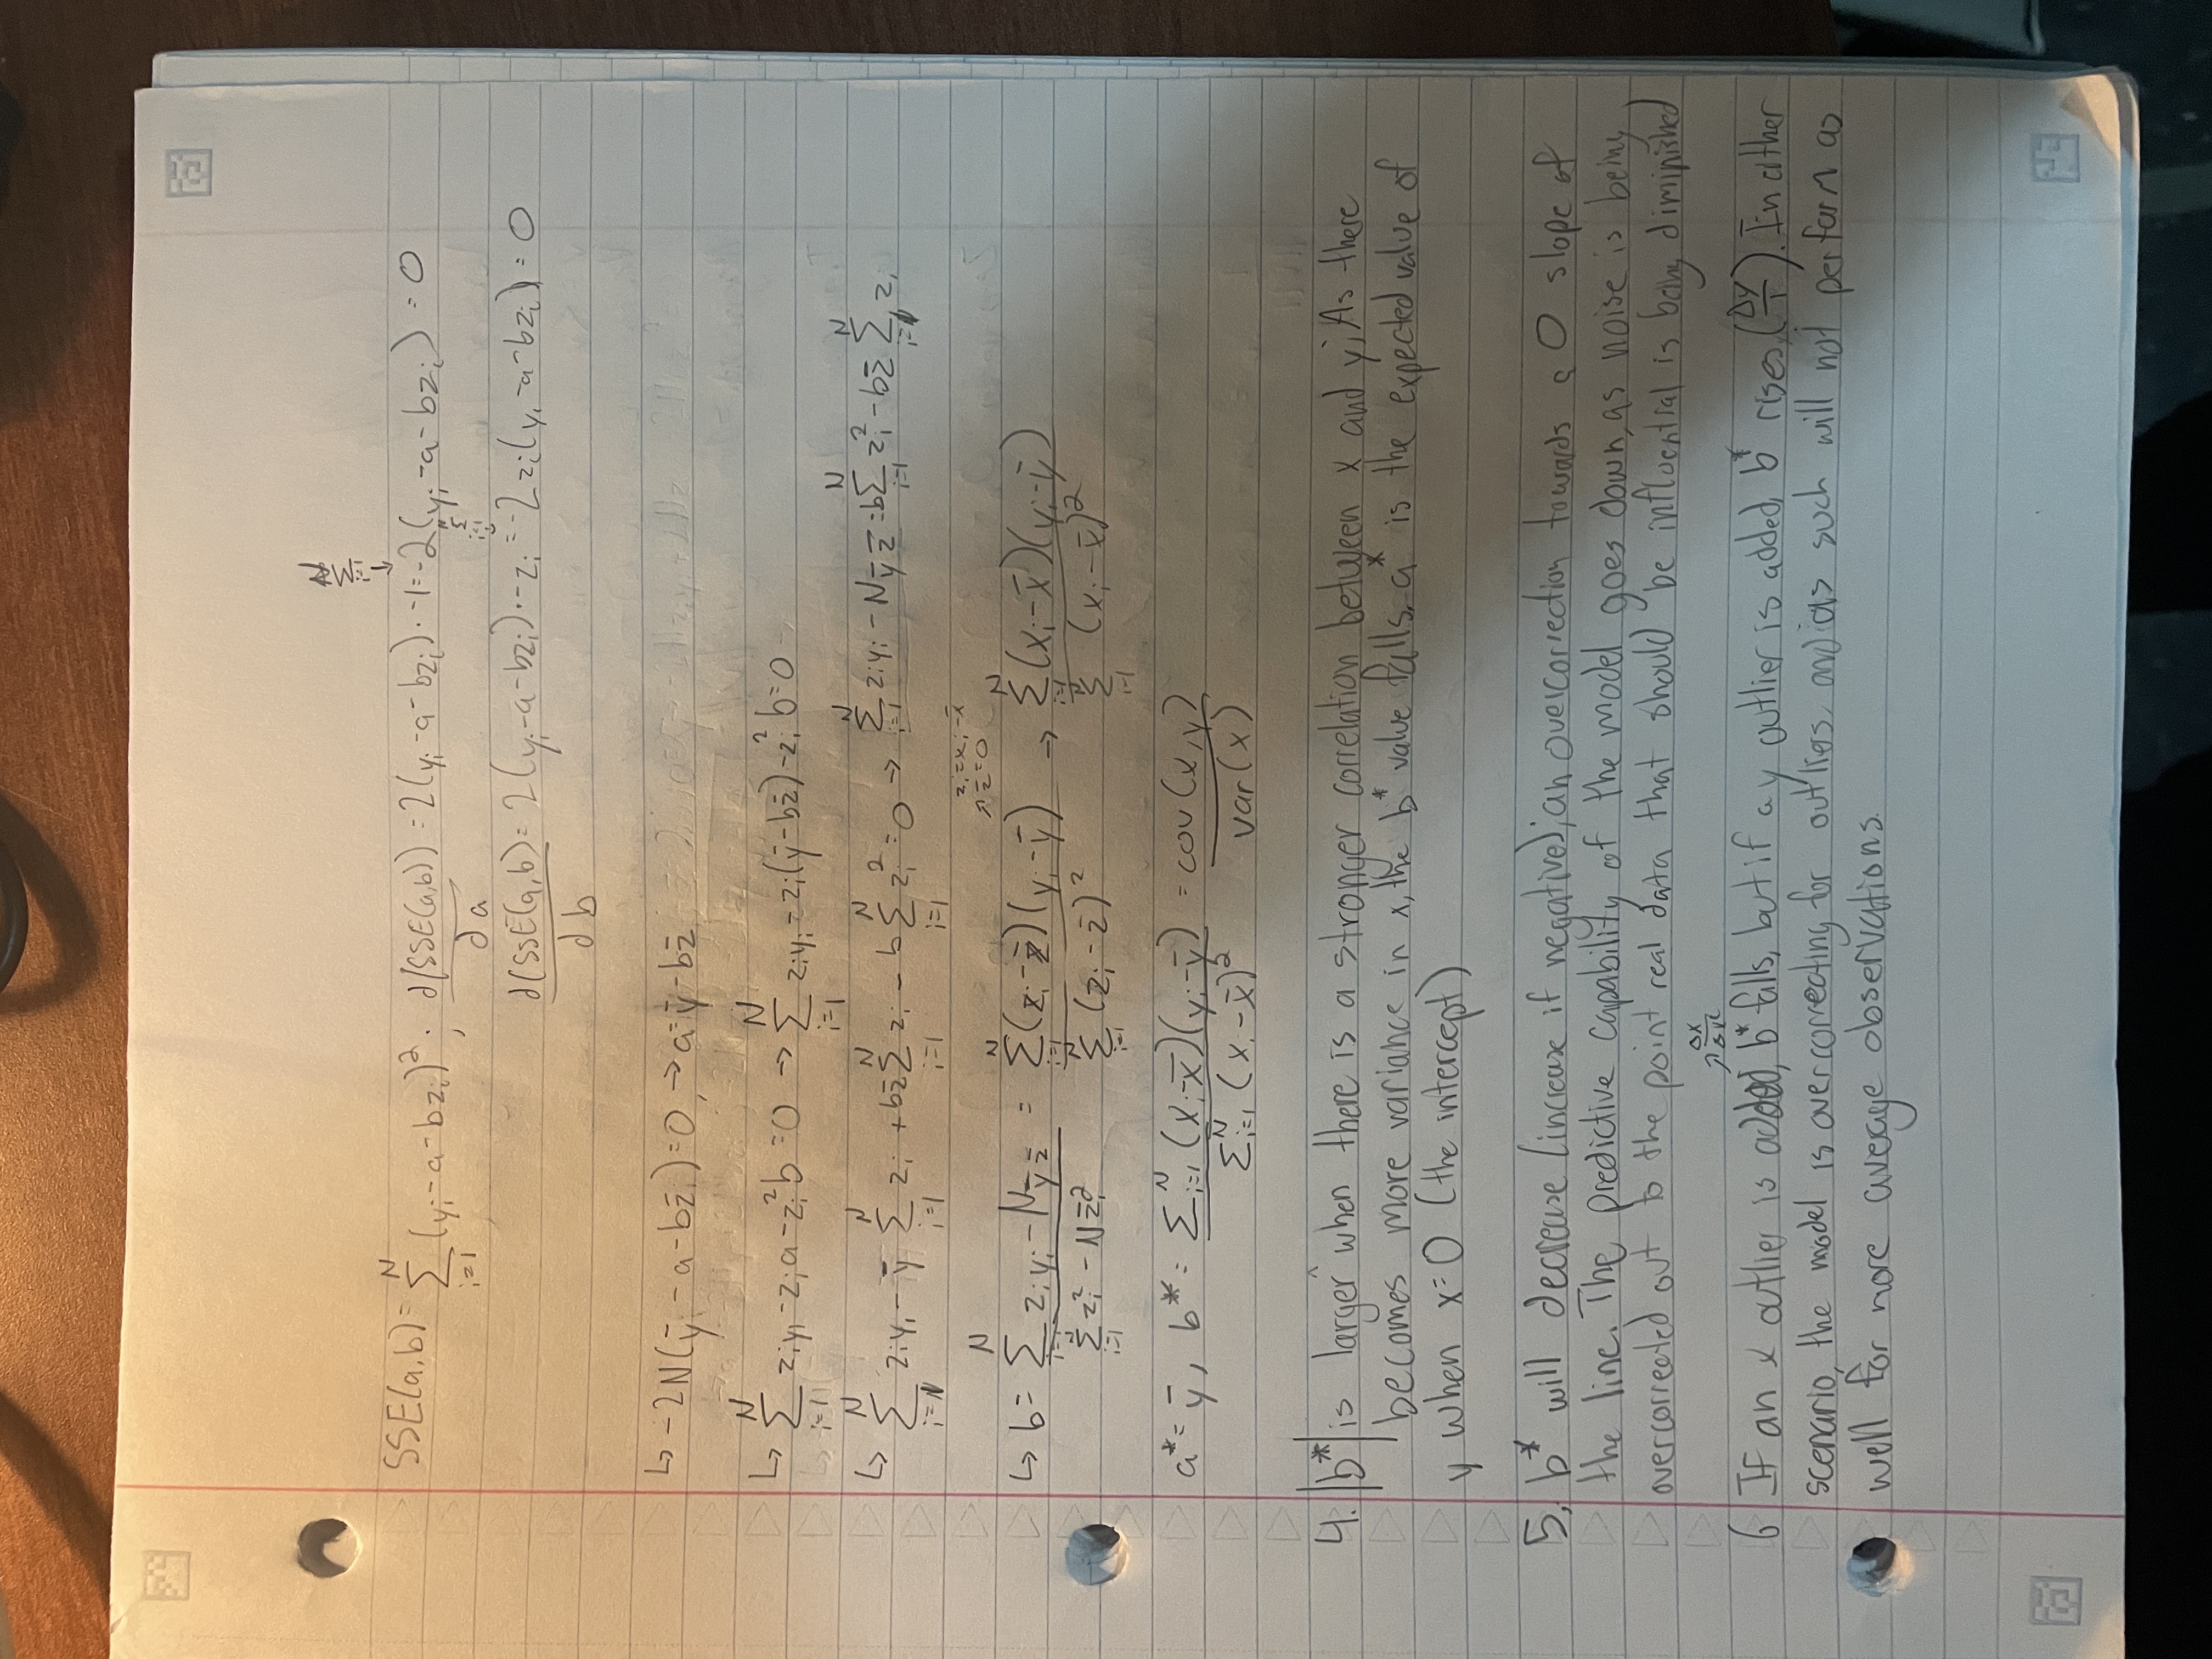 N Σ i=1 ↓
SSE(a,b) = N Σ i=1 (yᵢ - a - bzᵢ)² ; ∂(SSE(a,b)) / ∂a = 2(yᵢ - a - bzᵢ) · -1 = -2(yᵢ - a - bzᵢ) = 0
∂(SSE(a,b) / ∂b = 2(yᵢ - a - bzᵢ) · -zᵢ = -2zᵢ(yᵢ - a - bzᵢ) = 0
↳ -2N(ȳᵢ - a - bz̄ᵢ) = 0, → a = ȳ - bz̄
↳ N Σ i=1 zᵢyᵢ - zᵢa - zᵢ²b = 0 → N Σ i=1 zᵢyᵢ - zᵢ(ȳ - bz̄) - zᵢ²b = 0
↳ N Σ i=1 zᵢyᵢ - ȳ N Σ i=1 zᵢ + bz̄ N Σ i=1 zᵢ - b N Σ i=1 zᵢ² = 0 → N Σ i=1 zᵢyᵢ - Nȳz̄ = b N Σ i=1 zᵢ² - bz̄ N Σ i=1 zᵢ
zᵢ = xᵢ - x̄
↗ z̄ = 0
↳ b = N Σ i=1 zᵢyᵢ - Nȳz̄ / N Σ i=1 zᵢ² - Nz̄ᵢ² = N Σ i=1 (zᵢ - z̄)(yᵢ - ȳ) / N Σ i=1 (zᵢ - z̄)² → N Σ i=1 (xᵢ - x̄)(yᵢ - ȳ) / N Σ i=1 (xᵢ - x̄)²
a* = ȳ, b* = Σᵢ₌₁ᴺ (xᵢ - x̄)(yᵢ - ȳ) / Σᵢ₌₁ᴺ (xᵢ - x̄)² = cov(x,y) / var(x)
4. |b*| is larger when there is a stronger correlation between x and y; As there
becomes more variance in x, the b* value falls. a* is the expected value of
y when x=0 (the intercept)
5. b* will decrease (increase if negative); an overcorrection towards a 0 slope of
the line. The predictive capability of the model goes down, as noise is being
overcorrected out to the point real data that should be influential is being diminished
↗ Δx / Δx²
6 If an x outlier is added, b* falls, but if a y outlier is added, b* rises, (Δy / 1). In either
scenario, the model is overcorrecting for outliers, and as such will not perform as
well for more average observations.